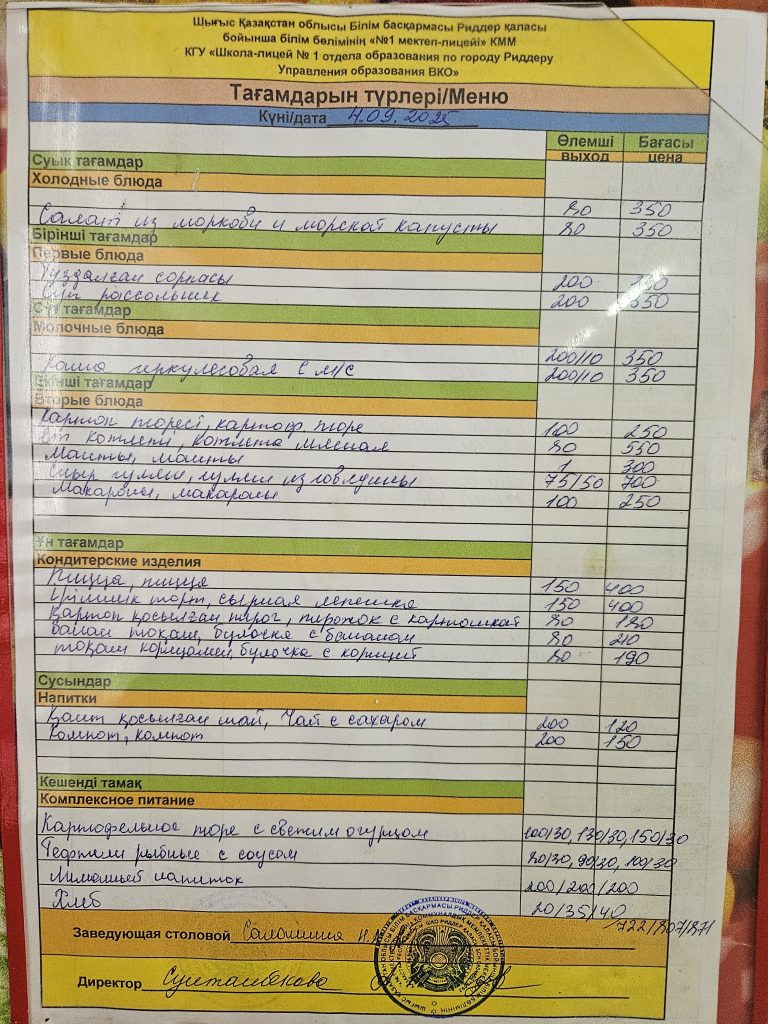 Шығыс Қазақстан облысы Білім басқармасы Риддер қаласы
бойынша білім бөлімінің «№1 мектеп-лицейі» КММ
КГУ «Школа-лицей № 1 отдела образования по городу Риддеру
Управления образования ВКО»
Тағамдарын түрлері/Меню
Күні/дата 4.09.2025
Өлемші Бағасы
выход цена
Суық тағамдар
Холодные блюда
80 350
Салат из моркови и морской капусты 80 350
Бірінші тағамдар
Первые блюда
Тұздалған сорпасы 200
Суп рассольник 200 350
Сүт тағамдар
Молочные блюда
200/10 350
Каша геркулесовая с м/с 200/10 350
Екінші тағамдар
Вторые блюда
Картоп пюресі, картоф. пюре 100 250
Ет котлеті, котлета мясная 80 550
Манты, манты 1 300
Сиыр гуляш, гуляш из говядины 75/50 700
Макароны, макароны 100 250
Ұн тағамдар
Кондитерские изделия
Пицца, пицца 150 400
Ірімшік торт, сырная лепешка 150 400
Картоп қосылған пирог, пирожок с картошкой 80 180
банан тоқаш, булочка с бананом 80 210
тоқаш корицамен, булочка с корицей 80 190
Сусындар
Напитки
Қант қосылған шай, Чай с сахаром 200 120
Компот, компот 200 150
Кешенді тамақ
Комплексное питание
Картофельное пюре с свежим огурцом 100/30, 130/30, 150/30
Тефтели рыбные с соусом 80/30, 90/30, 100/30
Лимонный напиток 200/200/200
Хлеб 20/35/40
722/807/871
Заведующая столовой
Директор